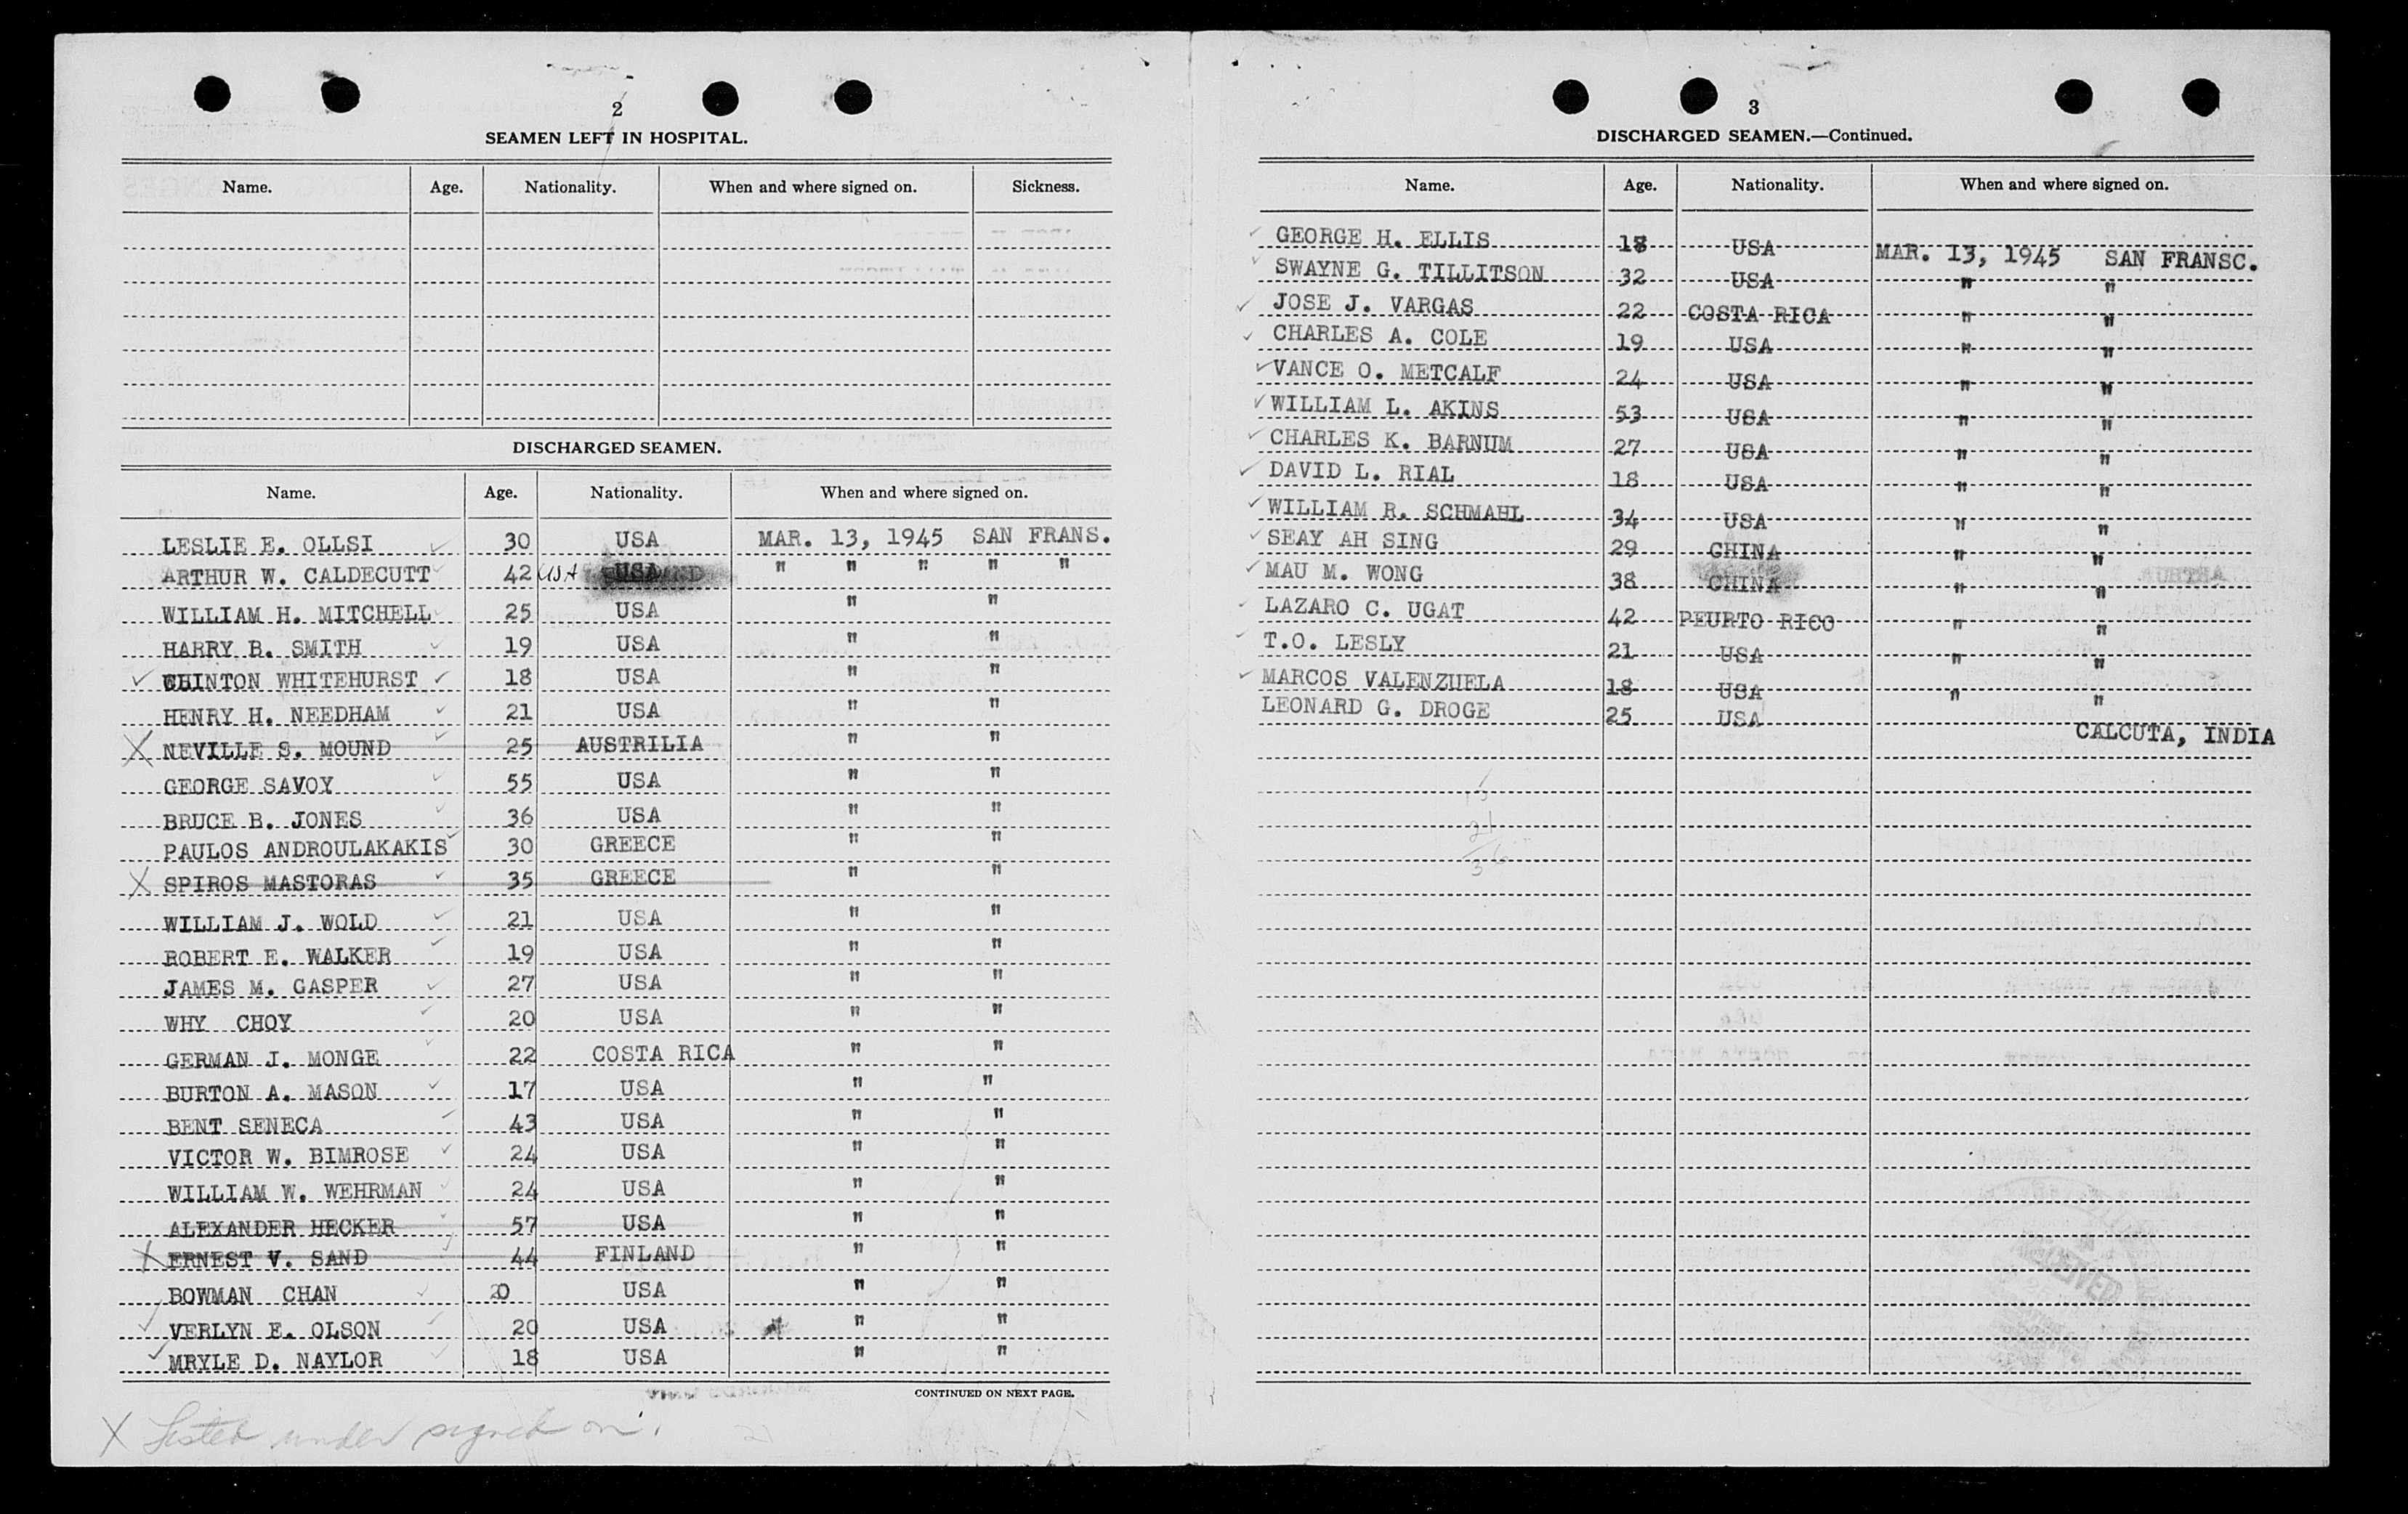 2
SEAMEN LEFT IN HOSPITAL.
Name. Age. Nationality. When and where signed on. Sickness.
DISCHARGED SEAMEN.
Name. Age. Nationality. When and where signed on.
LESLIE E. OLLSI 30 USA MAR. 13, 1945 SAN FRANS.
ARTHUR W. CALDECUTT 42 USA USA " " " " "
WILLIAM H. MITCHELL 25 USA " "
HARRY B. SMITH 19 USA " "
WHITEHURST 18 USA " "
HENRY H. NEEDHAM 21 USA " "
X NEVILLE S. MOUND 25 AUSTRILIA " "
GEORGE SAVOY 55 USA " "
BRUCE B. JONES 36 USA " "
PAULOS ANDROULAKAKIS 30 GREECE " "
X SPIROS MASTORAS 35 GREECE " "
WILLIAM J. WOLD 21 USA " "
ROBERT E. WALKER 19 USA " "
JAMES M. GASPER 27 USA " "
WHY CHOY 20 USA " "
GERMAN J. MONGE 22 COSTA RICA " "
BURTON A. MASON 17 USA " "
BENT SENECA 43 USA " "
VICTOR W. BIMROSE 24 USA " "
WILLIAM W. WEHRMAN 24 USA " "
ALEXANDER HECKER 57 USA " "
X ERNEST V. SAND 44 FINLAND " "
BOWMAN CHAN 20 USA " "
VERLYN E. OLSON 20 USA " "
MRYLE D. NAYLOR 18 USA " "
CONTINUED ON NEXT PAGE.
X Listed under signed on.
3
DISCHARGED SEAMEN.—Continued.
Name. Age. Nationality. When and where signed on.
GEORGE H. ELLIS 18 USA MAR. 13, 1945 SAN FRANSC.
SWAYNE G. TILLITSON 32 USA " "
JOSE J. VARGAS 22 COSTA RICA " "
CHARLES A. COLE 19 USA " "
VANCE O. METCALF 24 USA " "
WILLIAM L. AKINS 53 USA " "
CHARLES K. BARNUM 27 USA " "
DAVID L. RIAL 18 USA " "
WILLIAM R. SCHMAHL 34 USA " "
SEAY AH SING 29 CHINA " "
MAU M. WONG 38 CHINA " "
LAZARO C. UGAT 42 PEURTO RICO " "
T.O. LESLY 21 USA " "
MARCOS VALENZUELA 18 USA " "
LEONARD G. DROGE 25 USA
CALCUTA, INDIA
15
21
36
RECEIVED